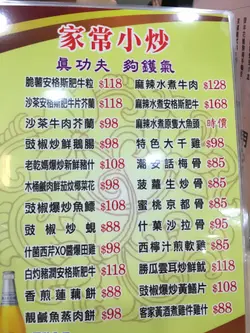 家常小炒
真功夫 夠鑊氣
脆薯安格斯肥牛粒 $118
沙茶安格斯肥牛片芥蘭 $118
沙茶牛肉芥蘭 $98
豉椒炒鮮鵝腸 $98
老乾媽爆炒新鮮豬什 $108
木桶鹹肉鮮茄炆椰菜花 $98
豉椒爆炒魚鰾 $108
豉椒炒蜆 $88
什菌西芹XO醬爆田雞 $98
白灼豬潤安格斯肥牛 $118
香煎蓮藕餅 $88
靚鹹魚蒸肉餅 $98
麻辣水煮牛肉 $128
麻辣水煮安格斯肥牛 $168
麻辣水煮原隻大魚頭 時價
特色大千雞 $98
潮安話梅骨 $85
菠蘿生炒骨 $85
蜜桃京都骨 $85
什菓沙拉骨 $95
西檸汁煎軟雞 $85
勝瓜雲耳炒鮮魷 $118
豉椒爆炒黃鱔片 $108
客家黃酒煮雞件雞什 $88